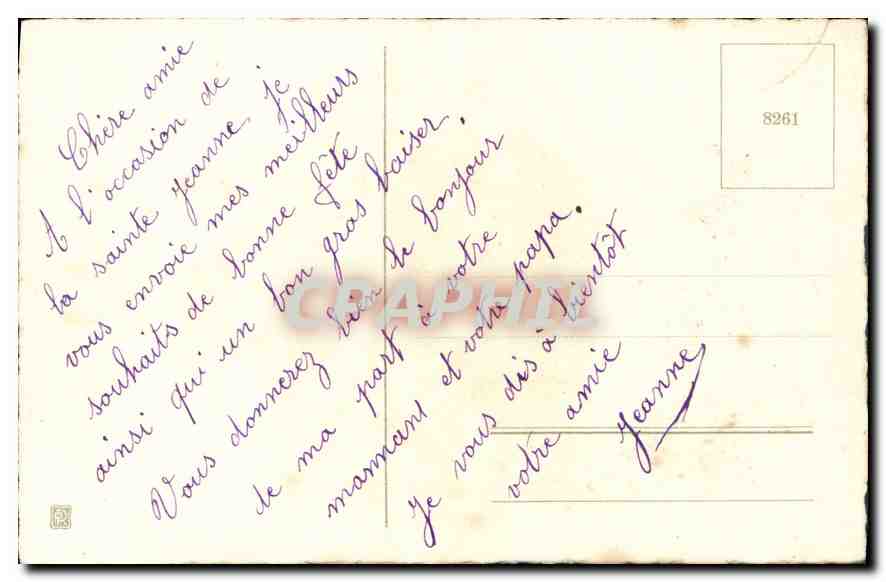 Chère amie
A l'occasion de
la sainte Jeanne, je
vous envoie mes meilleurs
souhaits de bonne fête
ainsi qui un bon gros baiser.
Vous donnerez bien le bonjour
de ma part à votre
mannant et votre papa.
Je vous dis à bientôt
votre amie
Jeanne
8261
CPAPHIL